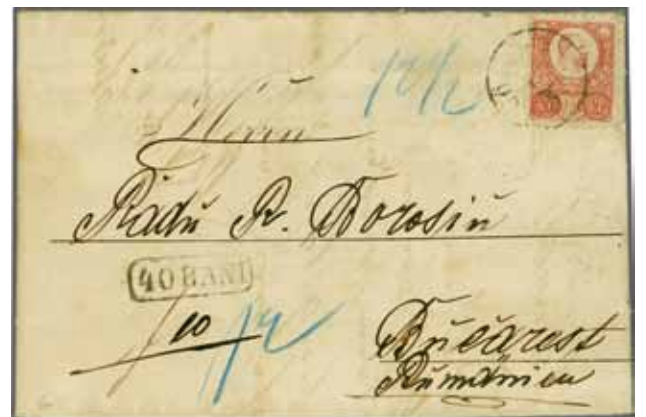 12/2
Herrn
Radu R. Borosiu
40 BANI
10
12
Bŭcarest
Rumänien